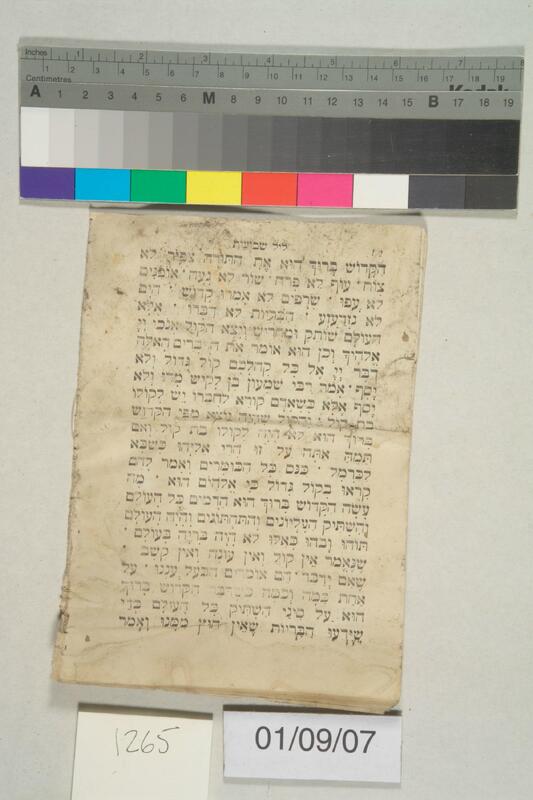 Inches 1 2 3 4 5 6 7 8
Centimetres 1 2 3 4 5 6 7 8 9 10 11 12 13 14 15 16 17 18 19
Kodak
A 1 2 3 4 5 6 M 8 9 10 11 12 13 14 15 B 17 18 19
ליל שבועות
הַקָּדוֹשׁ בָּרוּךְ הוּא אֶת הַתּוֹרָה צִפּוֹר לֹא
צוֹחַ עוֹף לֹא פָּרַח שׁוֹר לֹא גָעָה אוֹפַנִּים
לֹא עָפוּ שְׂרָפִים לֹא אָמְרוּ קָדוֹשׁ הַיָּם
לֹא נִזְדַּעְזֵעַ הַבְּרִיּוֹת לֹא דִּבְּרוּ אֶלָּא
הָעוֹלָם שׁוֹתֵק וּמַחֲרִישׁ וְיָצָא הַקּוֹל אָנֹכִי יְיָ
אֱלֹהֶיךָ וְכֵן הוּא אוֹמֵר אֶת הַדְּבָרִים הָאֵלֶּה
דִּבֶּר יְיָ אֶל כָּל קְהַלְכֶם קוֹל גָּדוֹל וְלֹא
יָסָף אָמַר רַבִּי שִׁמְעוֹן בֶּן לָקִישׁ מַהוּ וְלֹא
יָסָף אֶלָּא כְּשֶׁאָדָם קוֹרֵא לַחֲבֵרוֹ יֵשׁ לְקוֹלוֹ
בַּת קוֹל וְהַקּוֹל שֶׁהָיָה יוֹצֵא מִפִּי הַקָּדוֹשׁ
בָּרוּךְ הוּא לֹא הָיָה לְקוֹלוֹ בַּת קוֹל וְאִם
תָּמֵהַּ אַתָּה עַל זוֹ הֲרֵי אֵלִיָּהוּ כְּשֶׁבָּא
לַכַּרְמֶל כִּנֵּס כָּל הַכּוֹמָרִים וְאָמַר לָהֶם
קִרְאוּ בְקוֹל גָּדוֹל כִּי אֱלֹהִים הוּא מֶה
עָשָׂה הַקָּדוֹשׁ בָּרוּךְ הוּא הִדְמִים כָּל הָעוֹלָם
וְהִשְׁתִּיק הָעֶלְיוֹנִים וְהַתַּחְתּוֹנִים וְהָיָה הָעוֹלָם
תּוֹהוּ וָבֹהוּ כְּאִלּוּ לֹא הָיָה בְּרִיָּה בָּעוֹלָם
שֶׁנֶּאֱמַר אֵין קוֹל וְאֵין עוֹנֶה וְאֵין קָשֶׁב
שֶׁאִם יְדַבֵּר הֵם אוֹמְרִים הַבַּעַל עֲנֵנוּ עַל
אַחַת כַּמָּה וְכַמָּה כְּשֶׁדִּבֶּר הַקָּדוֹשׁ בָּרוּךְ
הוּא עַל סִינַי הִשְׁתִּיק כָּל הָעוֹלָם כְּדֵי
שֶׁיֵּדְעוּ הַבְּרִיּוֹת שֶׁאֵין חוּץ מִמֶּנּוּ וְאָמַר
1265
01/09/07